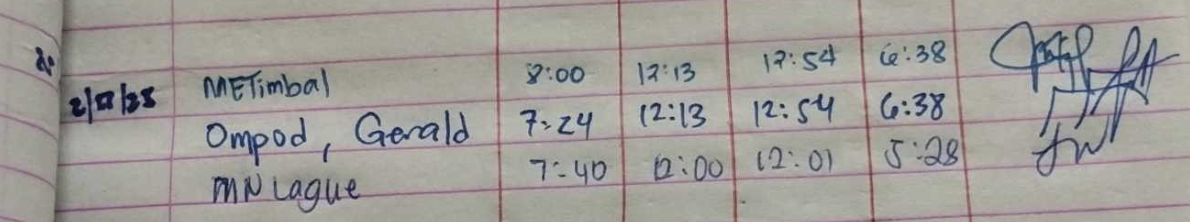 METimbal 8:00 12:13 12:54 6:38
Ompod, Gerald 7:24 12:13 12:54 6:38
MN Lague 7:40 12:00 12:01 5:28